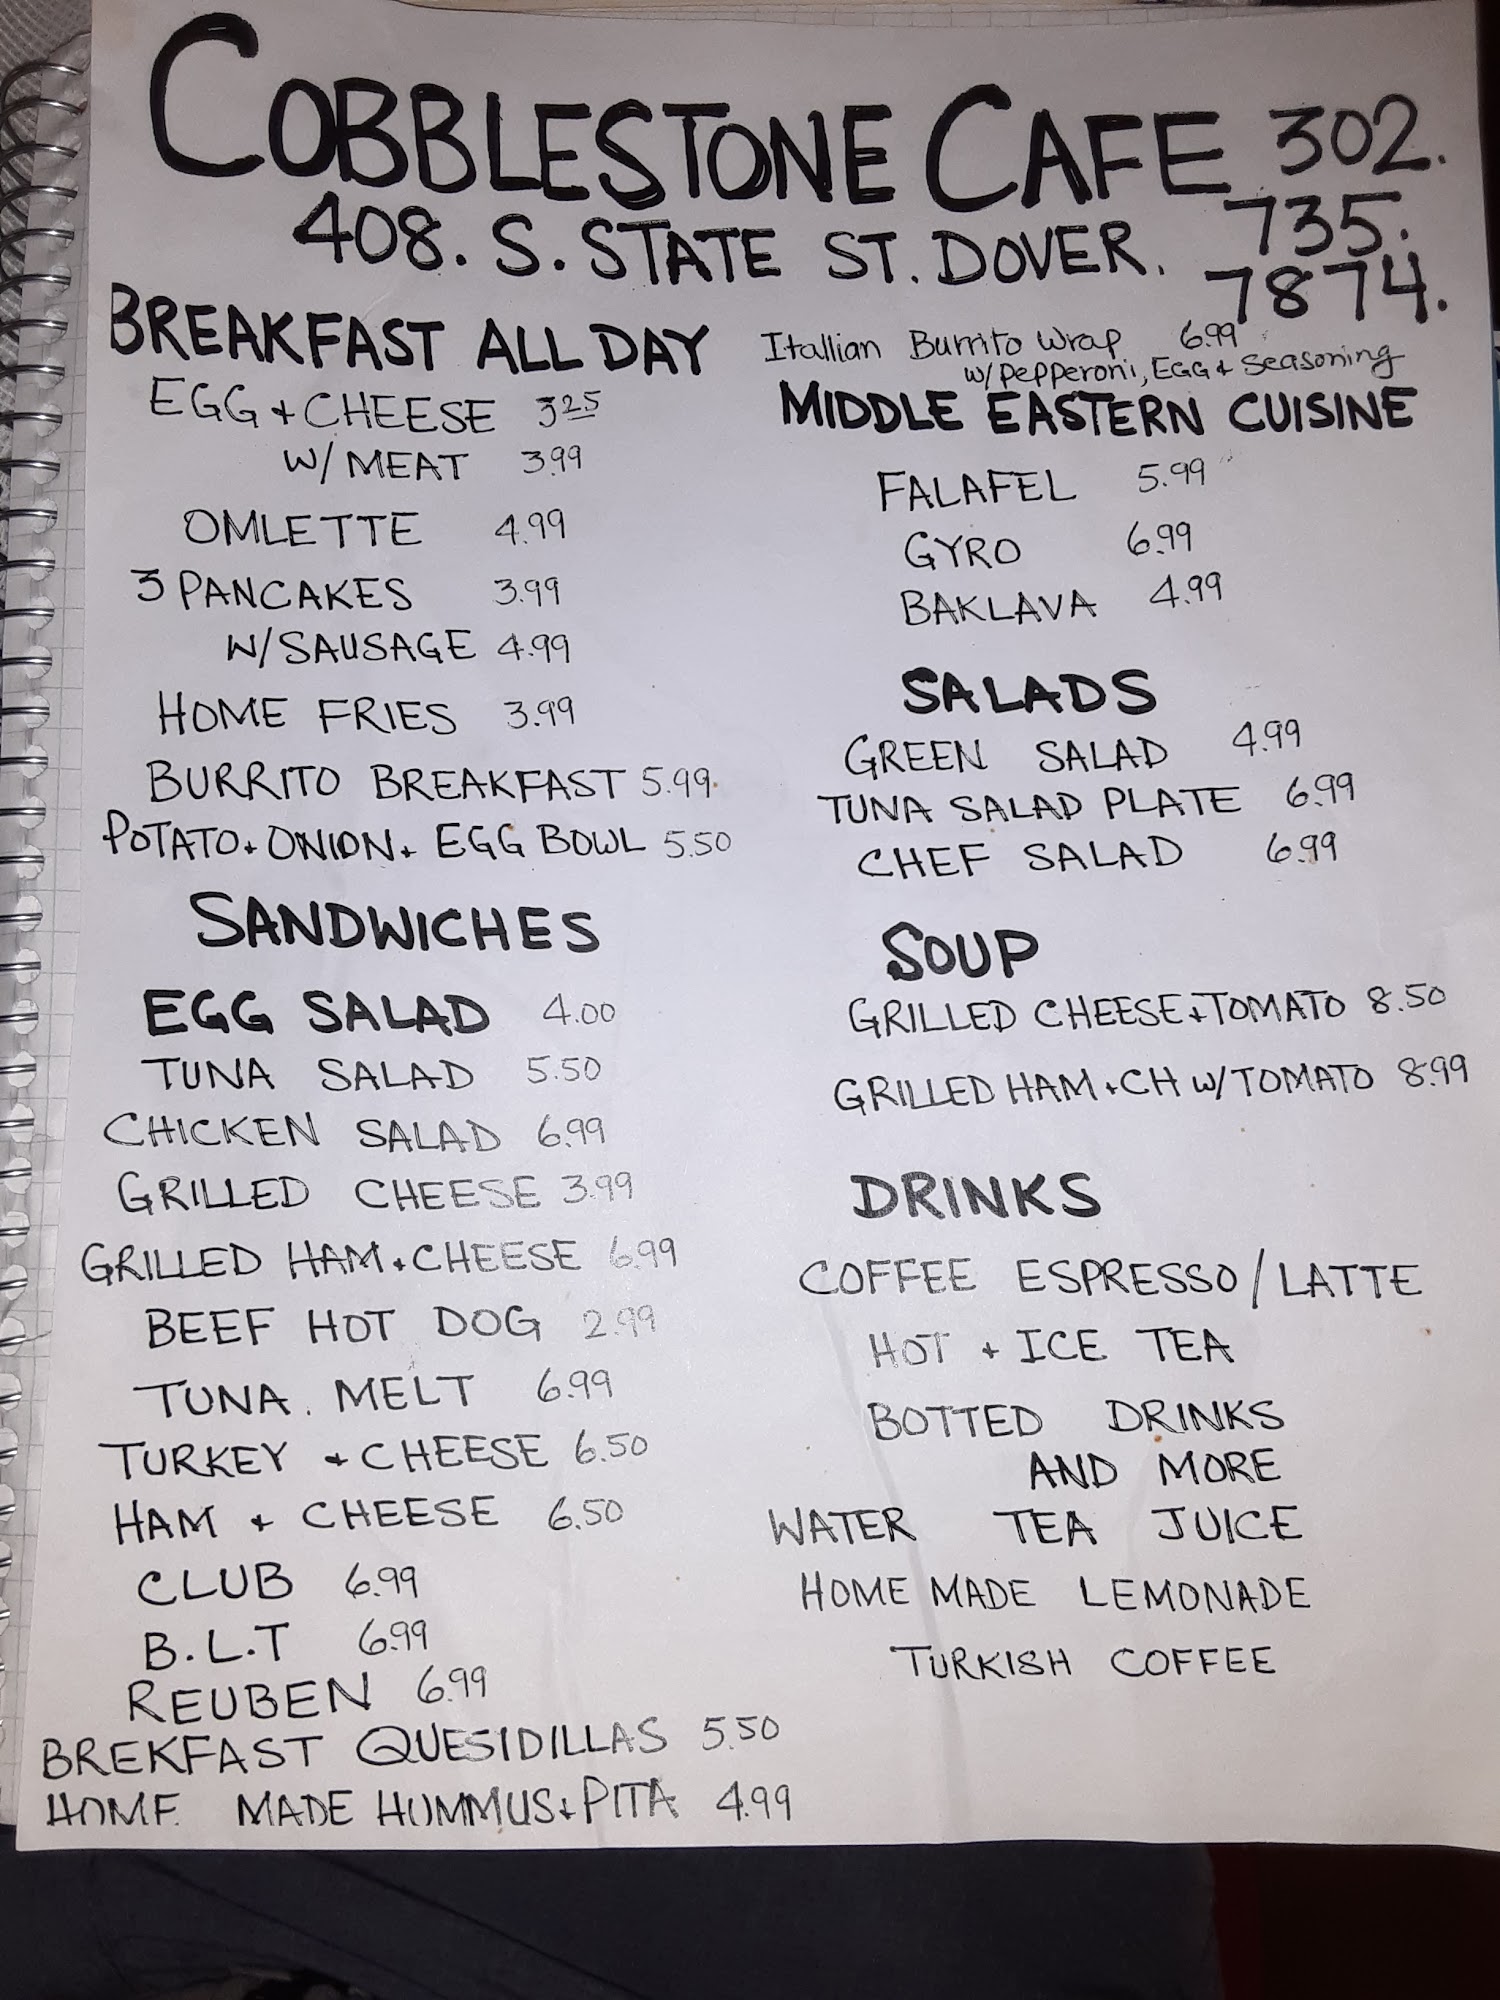 COBBLESTONE CAFE 302.
408. S. STATE ST. DOVER. 735.
7874.
BREAKFAST ALL DAY
EGG + CHEESE 3.25
W/ MEAT 3.99
OMLETTE 4.99
3 PANCAKES 3.99
W/SAUSAGE 4.99
HOME FRIES 3.99
BURRITO BREAKFAST 5.99
POTATO + ONION + EGG BOWL 5.50
SANDWICHES
EGG SALAD 4.00
TUNA SALAD 5.50
CHICKEN SALAD 6.99
GRILLED CHEESE 3.99
GRILLED HAM + CHEESE 6.99
BEEF HOT DOG 2.99
TUNA MELT 6.99
TURKEY + CHEESE 6.50
HAM + CHEESE 6.50
CLUB 6.99
B.L.T 6.99
REUBEN 6.99
BREKFAST QUESIDILLAS 5.50
HOME MADE HUMMUS + PITA 4.99
Itallian Burrito Wrap 6.99
w/ Pepperoni, EGG + Seasoning
MIDDLE EASTERN CUISINE
FALAFEL 5.99
GYRO 6.99
BAKLAVA 4.99
SALADS
GREEN SALAD 4.99
TUNA SALAD PLATE 6.99
CHEF SALAD 6.99
SOUP
GRILLED CHEESE + TOMATO 8.50
GRILLED HAM + CH W/TOMATO 8.99
DRINKS
COFFEE ESPRESSO / LATTE
HOT + ICE TEA
BOTTED DRINKS
AND MORE
WATER TEA JUICE
HOME MADE LEMONADE
TURKISH COFFEE